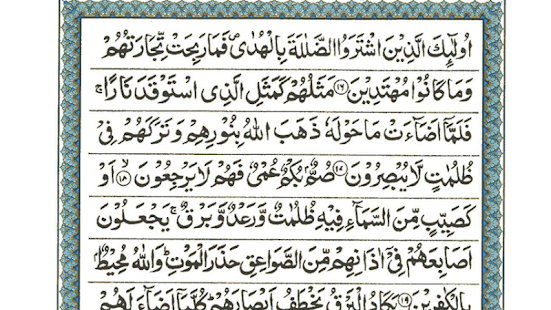 اُولٰٓئِكَ الَّذِيْنَ اشْتَرَوُا الضَّلٰلَةَ بِالْهُدٰى فَمَا رَبِحَتْ تِّجَارَتُهُمْ
وَمَا كَانُوْا مُهْتَدِيْنَ ۝۱۶ مَثَلُهُمْ كَمَثَلِ الَّذِى اسْتَوْقَدَ نَارًا ۚ
فَلَمَّآ اَضَآءَتْ مَا حَوْلَهٗ ذَهَبَ اللهُ بِنُوْرِهِمْ وَتَرَكَهُمْ فِيْ
ظُلُمٰتٍ لَّا يُبْصِرُوْنَ ۝۱۷ صُمٌّۢ بُكْمٌ عُمْيٌ فَهُمْ لَا يَرْجِعُوْنَ ۝۱۸ اَوْ
كَصَيِّبٍ مِّنَ السَّمَآءِ فِيْهِ ظُلُمٰتٌ وَّرَعْدٌ وَّبَرْقٌ ۚ يَجْعَلُوْنَ
اَصَابِعَهُمْ فِيْٓ اٰذَانِهِمْ مِّنَ الصَّوَاعِقِ حَذَرَ الْمَوْتِ ؕ وَاللهُ مُحِيْطٌۢ
بِالْكٰفِرِيْنَ ۝۱۹ يَكَادُ الْبَرْقُ يَخْطَفُ اَبْصَارَهُمْ ؕ كُلَّمَآ اَضَآءَ لَهُمْ